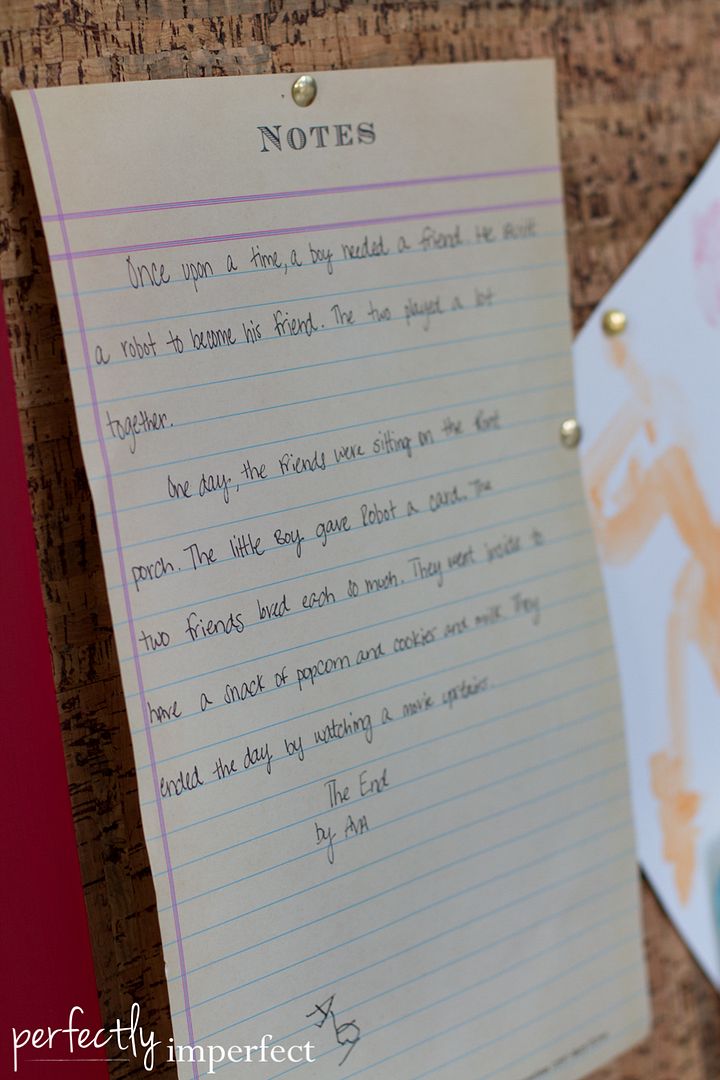 NOTES
Once upon a time, a boy needed a friend. He built
a robot to become his friend. The two played a lot
together.
One day, the friends were sitting on the front
porch. The little Boy gave Robot a card. The
two friends loved each so much. They went inside to
have a snack of popcorn and cookies and milk. They
ended the day by watching a movie upstairs.
The End
by AVA
perfectly imperfect